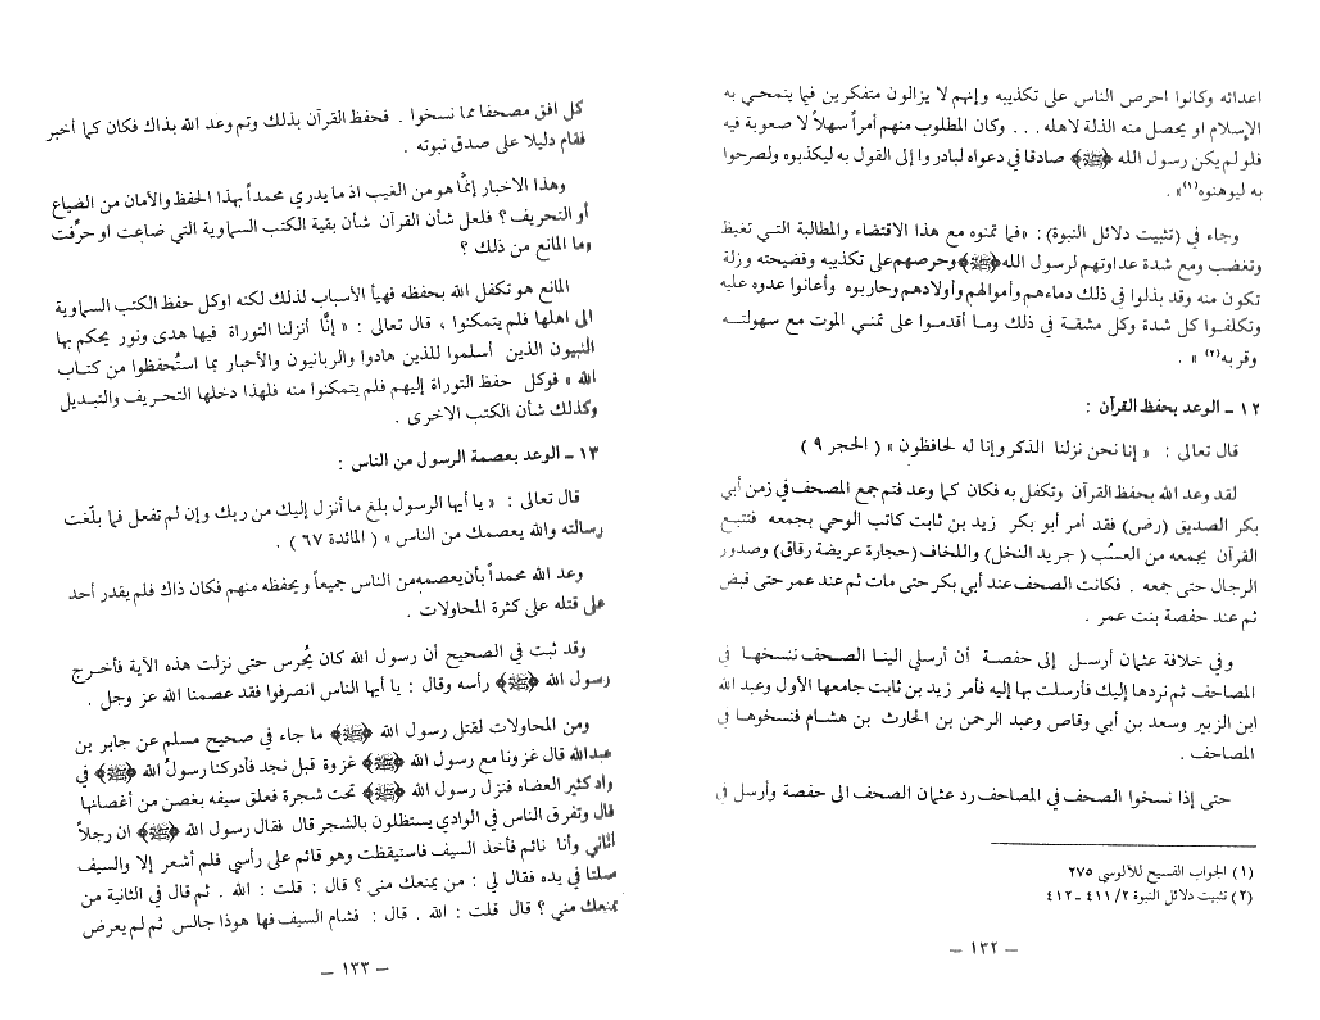 اعدائه وكانوا احرص الناس على تكذيبه وإنهم لا يزالون متفكرين فيما ينمحي به
الإسلام او يحصل منه الذلة لاهله . . . وكان المطلوب منهم أمراً سهلاً لا صعوبة فيه
فلو لم يكن رسول الله ﴿ﷺ﴾ صادقا في دعواه لبادروا إلى القول به ليكذبوه ولصرحوا
به ليوهنوه(١)» .
وجاء في (تثبيت دلائل النبوة): «فما تمنوه مع هذا الاقتضاء والمطالبة التي تغيظ
وتغضب ومع شدة عداوتهم لرسول الله﴿ﷺ﴾وحرصهم على تكذيبه وفضيحته وزلة
تكون منه وقد بذلوا في ذلك دماءهم وأموالهم وأولادهم وحاربوه وأعانوا عدوه عليه
وتكلفوا كل شدة وكل مشقة في ذلك وما أقدموا على تمني الموت مع سهولتـه
وقربه(٢) » .
١٢ ـ الوعد بحفظ القرآن :
قال تعالى : « إنا نحن نزلنا الذكر وإنا له لحافظون » ( الحجر ٩ )
لقد وعد الله بحفظ القرآن وتكفل به فكان كما وعد فتم جمع المصحف في زمن أبي
بكر الصديق (رض) فقد أمر أبو بكر زيد بن ثابت كاتب الوحي بجمعه فتتبع
القرآن يجمعه من العسُب ( جريد النخل) واللخاف (حجارة عريضة رقاق) وصدور
الرجال حتى جمعه . فكانت الصحف عند أبي بكر حتى مات ثم عند عمر حتى قبض
ثم عند حفصة بنت عمر .
وفي خلافة عثمان أرسل إلى حفصة أن أرسلي الينا الصحف ننسخها في
المصاحف ثم نردها إليك فأرسلت بها إليه فأمر زيد بن ثابت جامعها الأول وعبد الله
ابن الزبير وسعد بن أبي وقاص وعبد الرحمن بن الحارث بن هشام فنسخوها في
المصاحف .
حتى إذا نسخوا الصحف في المصاحف رد عثمان الصحف الى حفصة وأرسل في
(١) الجواب الفسيح للآلوسي ٢٧٥
(٢) تثبيت دلائل النبوة ٢/ ٤١١ ـ ٤١٢
ـ ١٣٢ ـ
كل افق مصحفا مما نسخوا . فحفظ القرآن بذلك وتم وعد الله بذاك فكان كما أخبر
فقام دليلا على صدق نبوته .
وهذا الاخبار إنمَّا هو من الغيب اذ ما يدري محمداً بهذا الحفظ والأمان من الضياع
أو التحريف ؟ فلعل شأن القرآن شأن بقية الكتب السماوية التي ضاعت او حرِّفت
وما المانع من ذلك ؟
المانع هو تكفل الله بحفظه فهيأ الأسباب لذلك لكنه اوكل حفظ الكتب السماوية
الى اهلها فلم يتمكنوا ، قال تعالى : « إنَّا أنزلنا التوراة فيها هدى ونور يحكم بها
النبيون الذين أسلموا للذين هادوا والربانيون والأحبار بما استُحفظوا من كتـاب
الله » فوكل حفظ التوراة إليهم فلم يتمكنوا منه فلهذا دخلها التحريف والتبديل
وكذلك شأن الكتب الاخرى .
١٣ ـ الوعد بعصمة الرسول من الناس :
قال تعالى : « يا أيها الرسول بلغ ما أنزل إليك من ربك وإن لم تفعل فما بلّغت
رسالته والله يعصمك من الناس » ( المائدة ٦٧ ) .
وعد الله محمداً بأن يعصمه من الناس جميعاً ويحفظه منهم فكان ذاك فلم يقدر أحد
على قتله على كثرة المحاولات .
وقد ثبت في الصحيح أن رسول الله كان يُحرس حتى نزلت هذه الآية فأخـرج
رسول الله ﴿ﷺ﴾ رأسه وقال : يا أيها الناس انصرفوا فقد عصمنا الله عز وجل .
ومن المحاولات لقتل رسول الله ﴿ﷺ﴾ ما جاء في صحيح مسلم عن جابر بن
عبدالله قال غزونا مع رسول الله ﴿ﷺ﴾ غزوة قبل نجد فأدركنا رسولُ الله ﴿ﷺ﴾ في
واد كثير العضاه فنزل رسول الله ﴿ﷺ﴾ تحت شجرة فعلق سيفه بغصن من أغصانها
قال وتفرق الناس في الوادي يستظلون بالشجر قال فقال رسول الله ﴿ﷺ﴾ ان رجلاً
أتاني وأنا نائم فأخذ السيف فاستيقظت وهو قائم على رأسي فلم أشعر إلا والسيف
صلتا في يده فقال لي : من يمنعك مني ؟ قال : قلت : الله . ثم قال في الثانية من
يمنعك مني ؟ قال قلت : الله . قال : فشام السيف فها هوذا جالس ثم لم يعرض
ـ ١٣٣ ـ